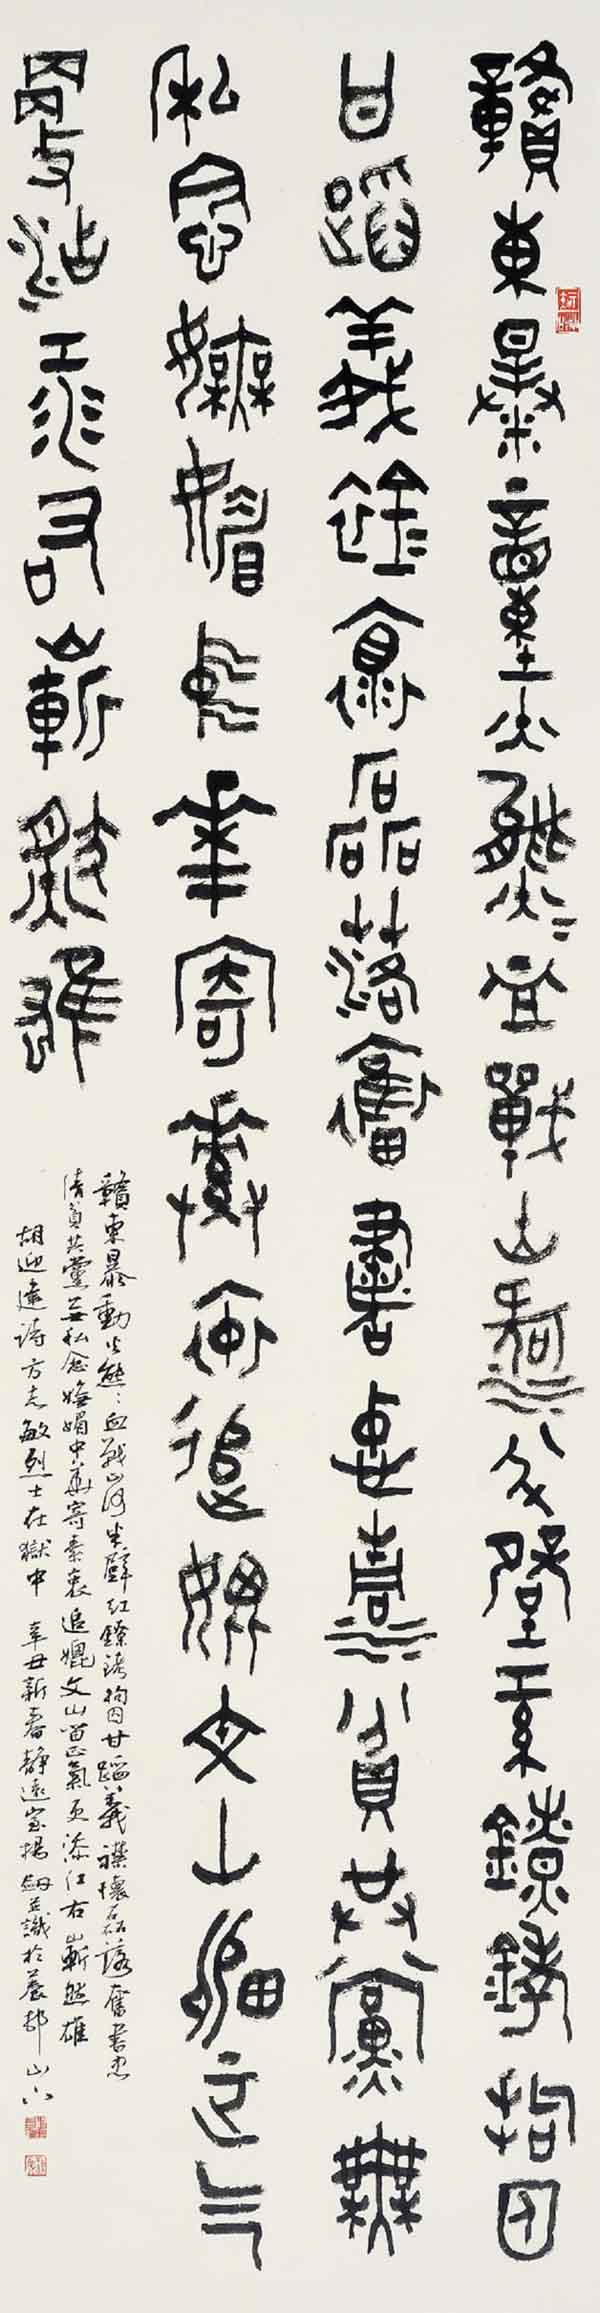 贛東暴動火熊=血戰山河半壁紅鐐銬拘囚
甘蹈義襟懷磊落奮書忠清貧共黨無
私念嫵媚中華寄素衷追媲文山留正气
更添江右嶄然雄
贛東暴動火熊:血戰山河半壁紅鐐銬拘囚甘蹈義襟懷磊落奮書忠
清貧共黨無私念嫵媚中華寄素衷追媲文山留正氣更添江右嶄然雄
胡迎建詩方志敏烈士在獄中 辛丑新春靜遠室楊劍並識於山下